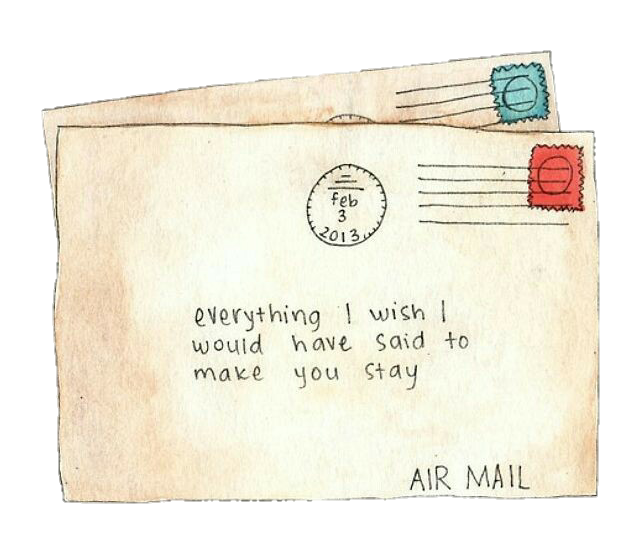 feb
3
2013
everything I wish I
would have said to
make you stay
AIR MAIL